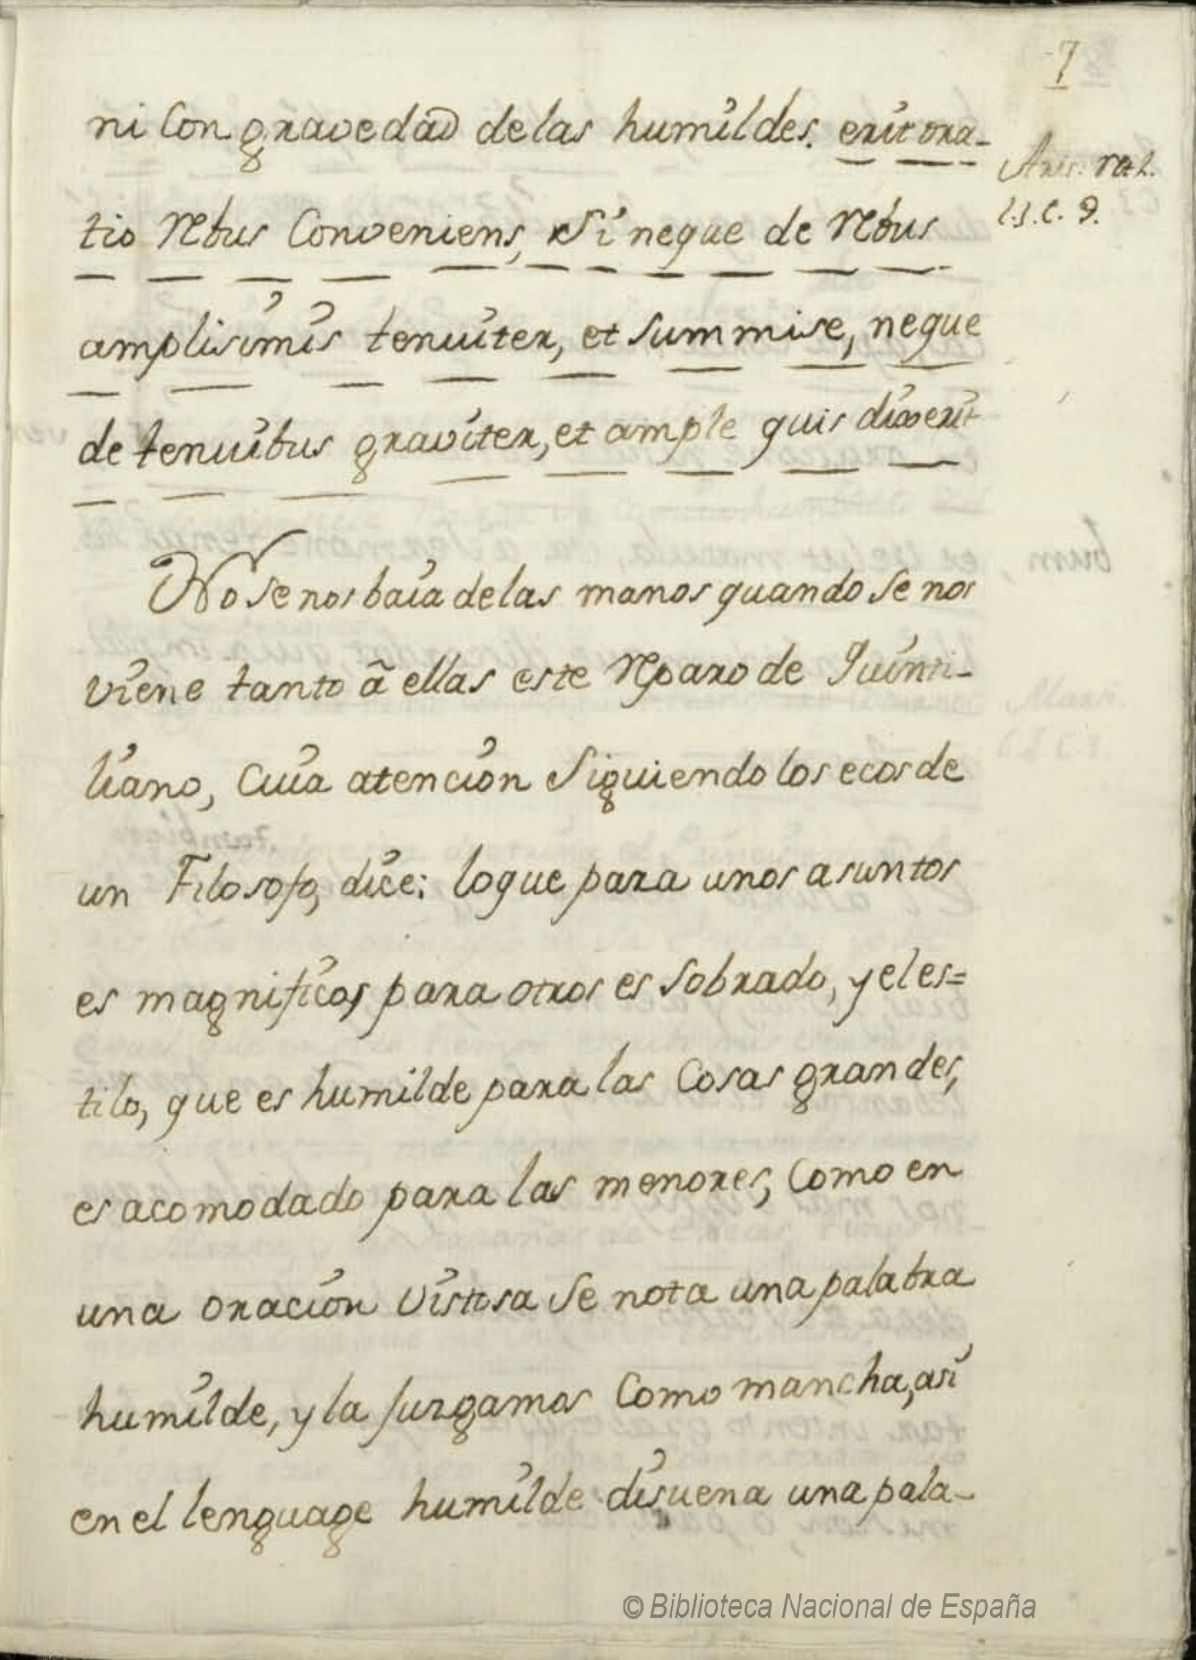 7
ni Con gravedad de las humildes. erit ora-
Aris. Ret.
l.3.c. 9.
tio rebus Conveniens, Si neque de rebus
amplisimis tenuiter, et Summise, neque
de tenuibus graviter, et ample quis dixerit
No Se nos baia de las manos quando Se nos
viene tanto â ellas este reparo de Quinti-
liano, Cuia atención Siguiendo los ecos de
un Filosofo, dice: lo que para unos asuntos
es magnifico, para otros es Sobrado, y el es=
tilo, que es humilde para las Cosas grandes,
es acomodado para las menores, Como en
una oración Vistosa Se nota una palabra
humilde, y la Jurgamos Como mancha, asi
en el lenguage humilde disuena una pala-
© Biblioteca Nacional de España